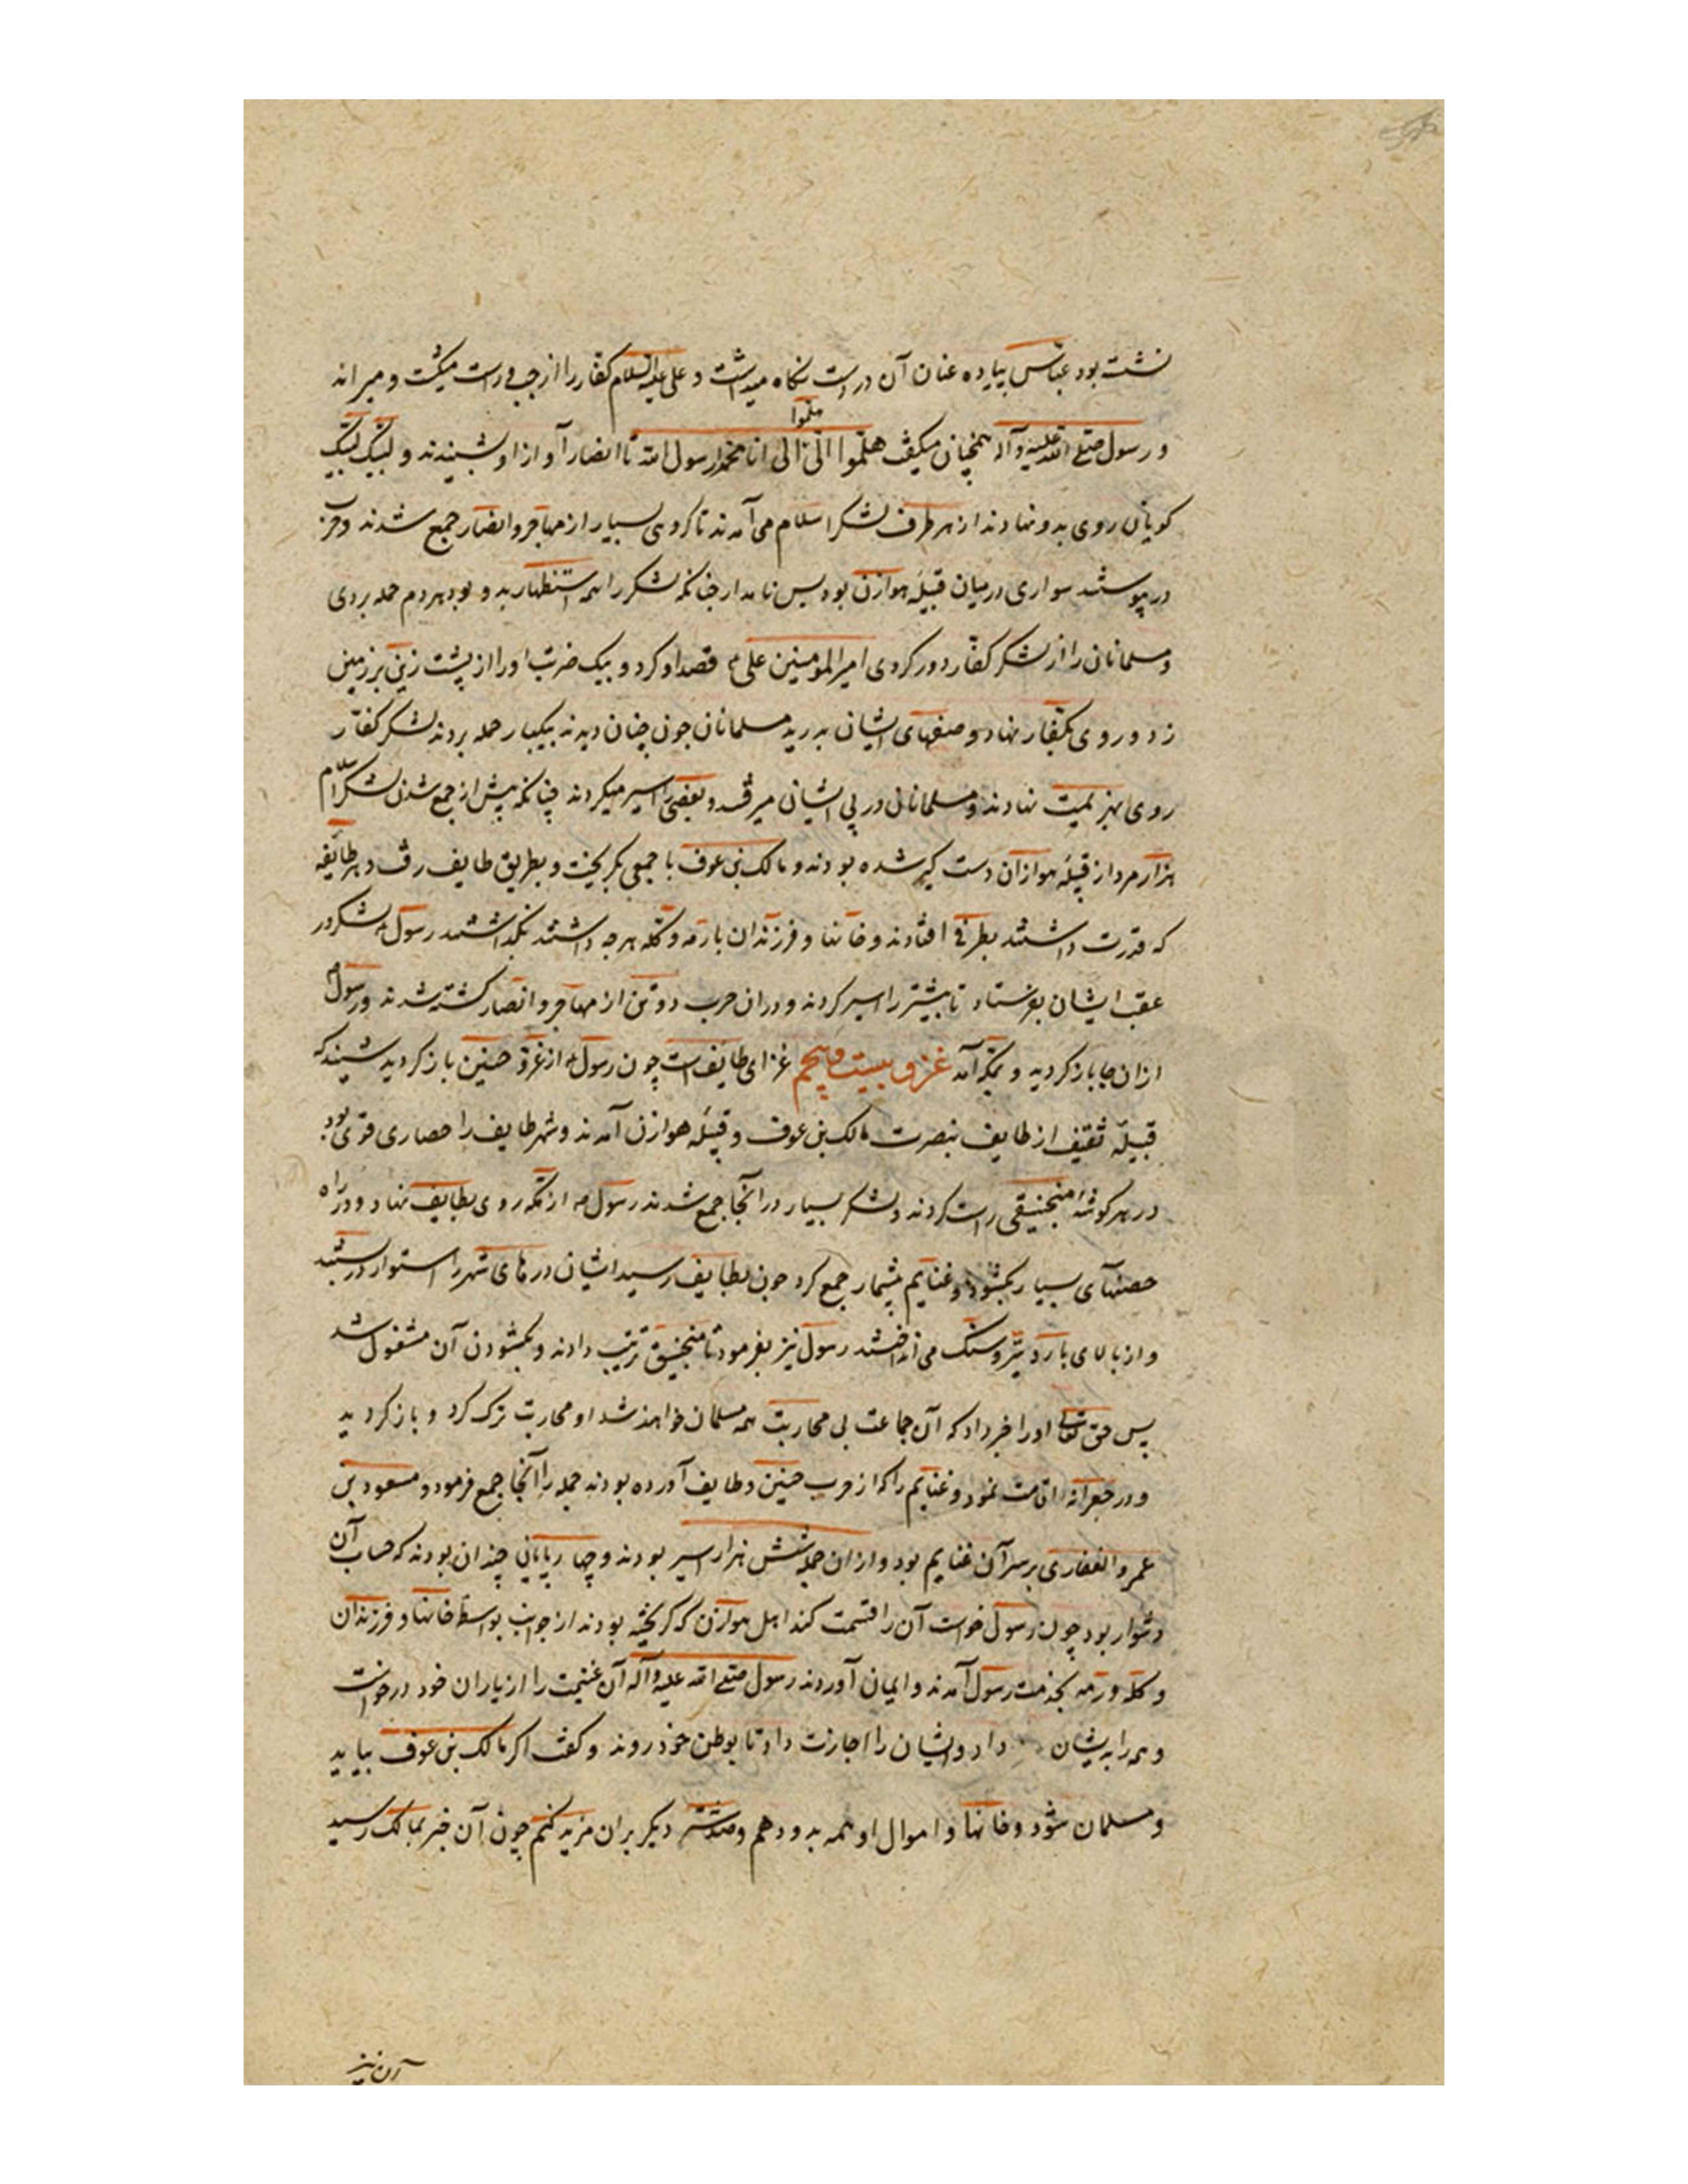 نشسته بود عباس پیاده عنان آن در دست نکاه میداشت و علی علیه السلام کفار را از چپ و راست میکشت و میراند
هلموا
و رسول صلی الله علیه و آله همچنان میکفت هلموا الی الی انا محمد رسول الله تا انصار آواز او شنیدند و لبیک لبیک
کویان روی بدو نهادند از هر طرف لشکر اسلام می آمدند تا کروهی بسیار از مهاجر و انصار جمع شدند و حرب
در پیوستند سواری درمیان قبیله هوازن بود بس نامدار جنانکه لشکر را همه استظهار بدو بود هر دم حمله بردی
و مسلمانان را از لشکر کفار دور کردی امیرالمومنین علی قصد او کرد و بیک ضربت او را از پشت زین بر زمین
زد و روی بکفار نهاد و صفهای ایشان بدرید مسلمانان جون چنان دیدند بیکبار حمله بردند لشکر کفار
روی بهزیمت نهادند و مسلمانان در پی ایشان میرفتند و بعضی را اسیر میکردند چنانکه پیش از جمع شدن لشکر اسلام
هزار مرد از قبیله هوازان دست کیر شده بودند و مالک بن عوف با جمعی بکریخت و بطریق طایف رفت و هر طایفه
که قدرت داشتند بطرفی افتادند و خانها و فرزندان با رمه و کله هرجه داشتند بکذاشتند رسول لشکر در
عقب ایشان بفرستاد تا بیشتر را اسیر کردند و دران حرب دو تن از مهاجر و انصار کشته شدند و رسول
ازان جا باز کردید و بمکه آمد غزو بیست و پنجم غزای طایف است چون رسول از غزو حنین باز کردید شنید که
قبیله ثقیف از طایف بنصرت مالک بن عوف و قبیله هوازن آمدند و شهر طایف را حصاری قوی بود
در هر کوشه منجنیقی راست کردند و لشکر بسیار در آنجا جمع شدند رسول از مکه روی بطایف نهاد و در راه
حصنهای بسیار بکشود و غنایم بیشمار جمع کرد جون بطایف رسید ایشان درهای شهر را استوار در بستند
و از بالای بارو تیر و سنک می انداختند رسول نیز بفرمود تا منجنیق ترتیب دادند و بکشودن آن مشغول شد
پس حق تعالی او را خبر داد که آن جماعت بی محاربت همه مسلمان خواهند شد او محاربت ترک کرد و باز کردید
و در جعرانه اقامت نمود و غنایم را که از حرب حنین و طایف آورده بودند جمله را آنجا جمع فرمود و مسعود بن
عمرو الغفاری بر سر آن غنایم بود و ازان جمله شش هزار اسیر بودند و چهارپایانی چندان بودند که حساب آن
دشوار بود چون رسول خواست آن را قسمت کند اهل هوازن که کریخته بودند از جوانب بواسطه خانها و فرزندان
و کله و رمه بخدمت رسول آمدند و ایمان آوردند رسول صلی الله علیه و آله آن غنیمت را از یاران خود درخواست
و همه را بدیشان داد و ایشان را اجازت داد تا بوطن خود روند و کفت اکر مالک بن عوف بیاید
و مسلمان شود و خانها و اموال او همه بدو دهم و صد شتر دیکر بران مزید کنم چون آن خبر بمالک رسید
آن نیز